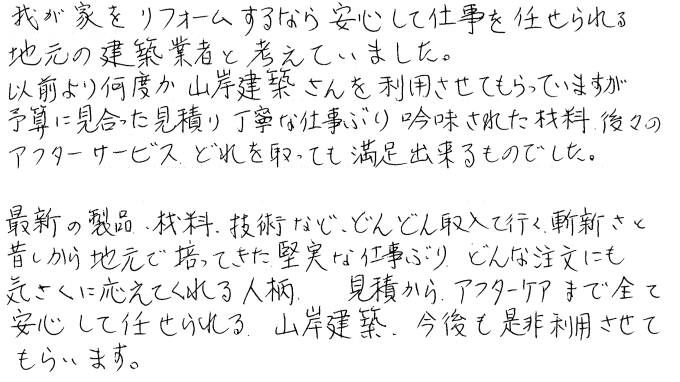 我が家をリフォームするなら安心して仕事を任せられる
地元の建築業者と考えていました。
以前より何度か山岸建築さんを利用させてもらっていますが
予算に見合った見積り丁寧な仕事ぶり吟味された材料、後々の
アフターサービス、どれを取っても満足出来るものでした。
最新の製品、材料、技術など、どんどん取入て行く、斬新さと
昔しから地元で培ってきた堅実な仕事ぶり、どんな注文にも
気さくに応えてくれる人柄、見積から、アフターケアまで全て
安心して任せられる、山岸建築、今後も是非利用させて
もらいます。